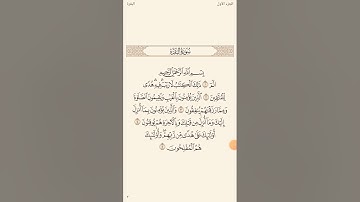 الجزء الأول
البقرة
سُورَةُ البَقَرَةِ
بِسْمِ اللَّهِ الرَّحْمَٰنِ الرَّحِيمِ
الٓمٓ ١ ذَٰلِكَ الْكِتَٰبُ لَا رَيْبَ ۛ فِيهِ ۛ هُدًى
لِّلْمُتَّقِينَ ٢ الَّذِينَ يُؤْمِنُونَ بِالْغَيْبِ وَيُقِيمُونَ الصَّلَوٰةَ
وَمِمَّا رَزَقْنَٰهُمْ يُنفِقُونَ ٣ وَالَّذِينَ يُؤْمِنُونَ بِمَا أُنزِلَ
إِلَيْكَ وَمَا أُنزِلَ مِن قَبْلِكَ وَبِالْءَاخِرَةِ هُمْ يُوقِنُونَ ٤
أُولَٰئِكَ عَلَىٰ هُدًى مِّن رَّبِّهِمْ وَأُولَٰئِكَ
هُمُ الْمُفْلِحُونَ ٥